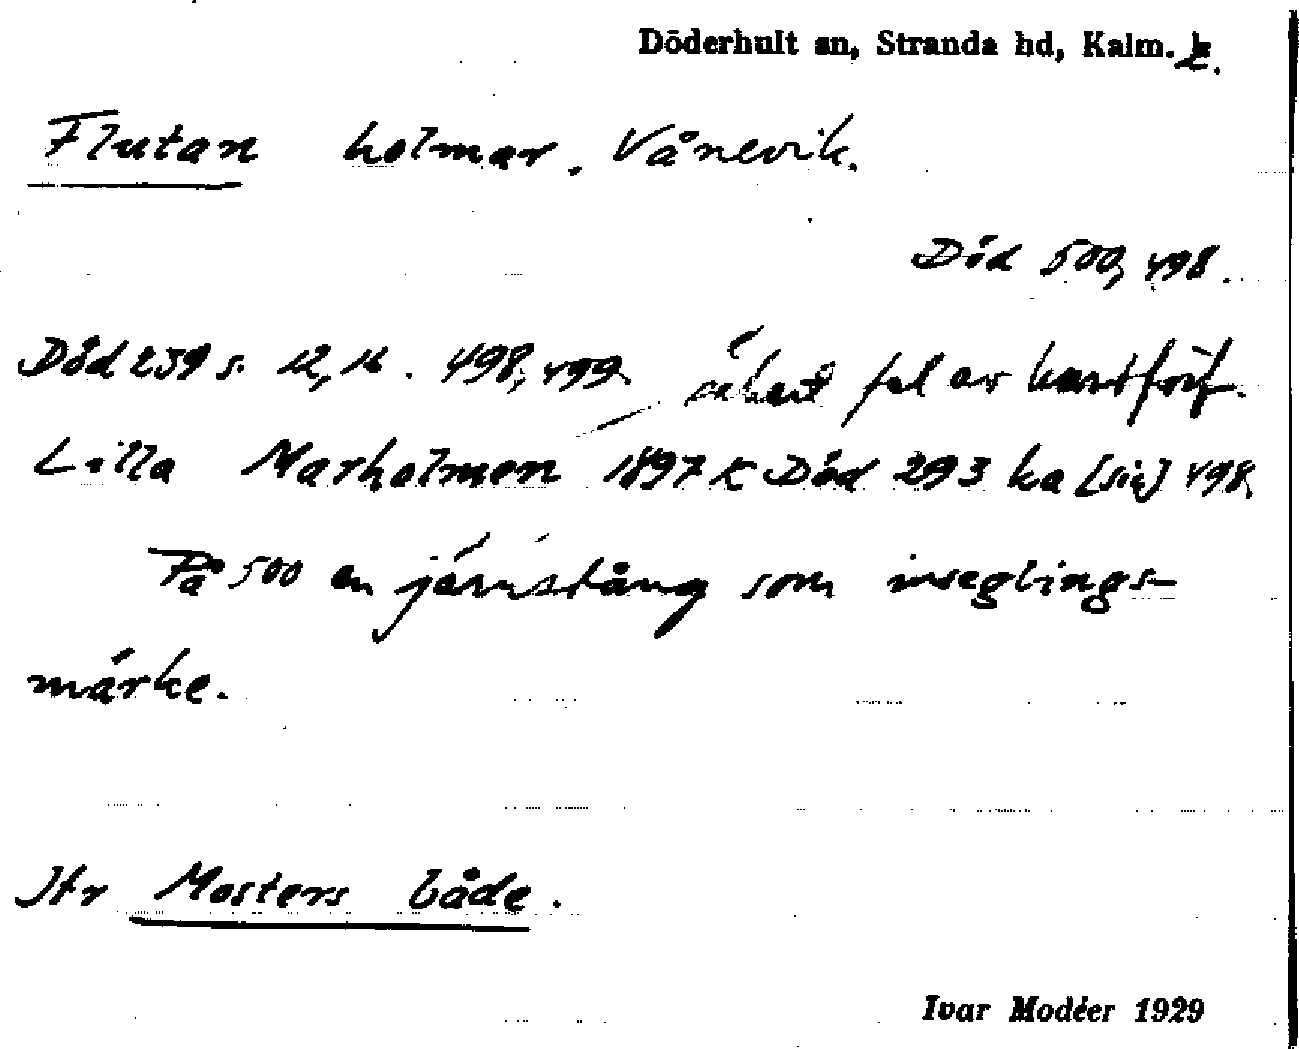 Döderhult sn, Stranda hd, Kalm. l.
Flutan holmar. Vånevik.
Död 500, 498.
Död 239 s. 12, 16. 498, 499. säkert fel av kartförf.
Lilla Marholmen 1897 K Död 293 ka [sic] 498.
På 500 en järnstång som inseglings-
märke.
Jfr Mosters både.
Ivar Modéer 1929